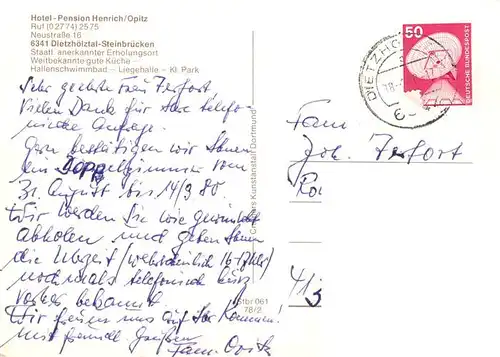 Hotel - Pension Henrich/Opitz
Ruf (0 27 74) 25 75
Neustraße 16
6341 Dietzhölztal-Steinbrücken
Staatl. anerkannter Erholungsort
Weitbekannte gute Küche –
Hallenschwimmbad – Liegehalle – Kl. Park
Sehr geehrte Frau
Vielen Dank für Ihre telefo-
nische Anfrage.
Gern bestätigen wir Ihnen
ein Doppelzimmer vom
31. August bis 14/9 80.
Wir werden Sie wie gewünscht
abholen und geben Ihnen
die Uhrzeit (wahrscheinlich 16-17 Uhr)
nochmals telefonisch kurz
vorher bekannt.
Wir freuen uns auf Ihr Kommen.
Mit freundl. Grüßen
Fam. Opitz
Kunstanstalt Dortmund
061
78/2
50
DEUTSCHE BUNDESPOST
DIETZHÖ
18.
6
Fam
Joh.